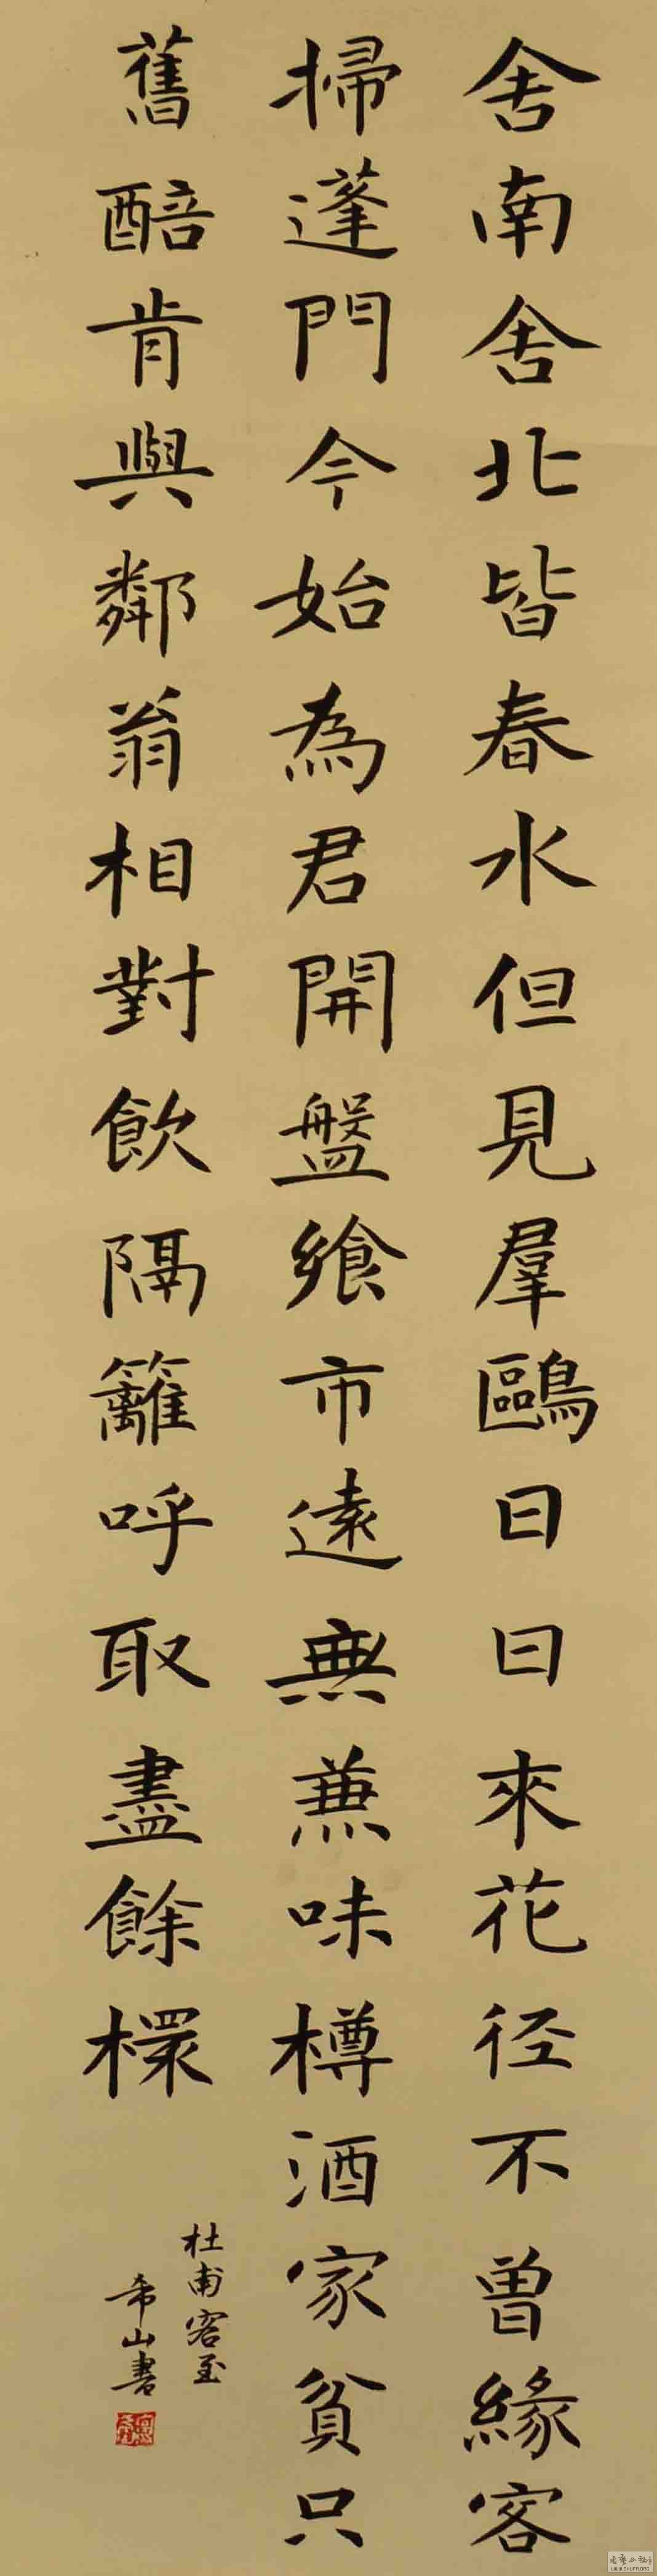 舍南舍北皆春水但見羣鷗日日來花径不曾緣客
掃蓬門今始為君開盤飧市遠無兼味樽酒家貧只
舊醅肯與鄰翁相對飲隔籬呼取盡餘櫰
杜甫客至
希山書
WWW.SHUFR.ORG